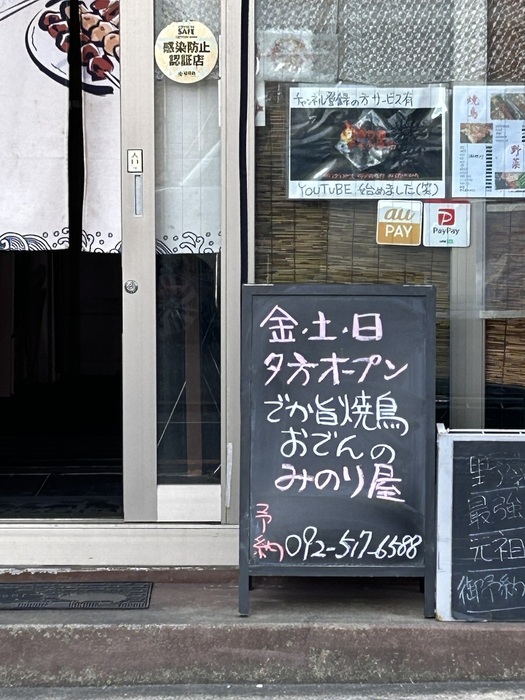 感染防止
認証店
入口
チャンネル登録の方サービス有
YOUTUBE 始めました(笑)
焼鳥
野菜
au
PAY
PayPay
金・土・日
夕方オープン
でか旨焼鳥
おでんの
みのり屋
予約 092-517-6588
野
最強
元祖
御予約